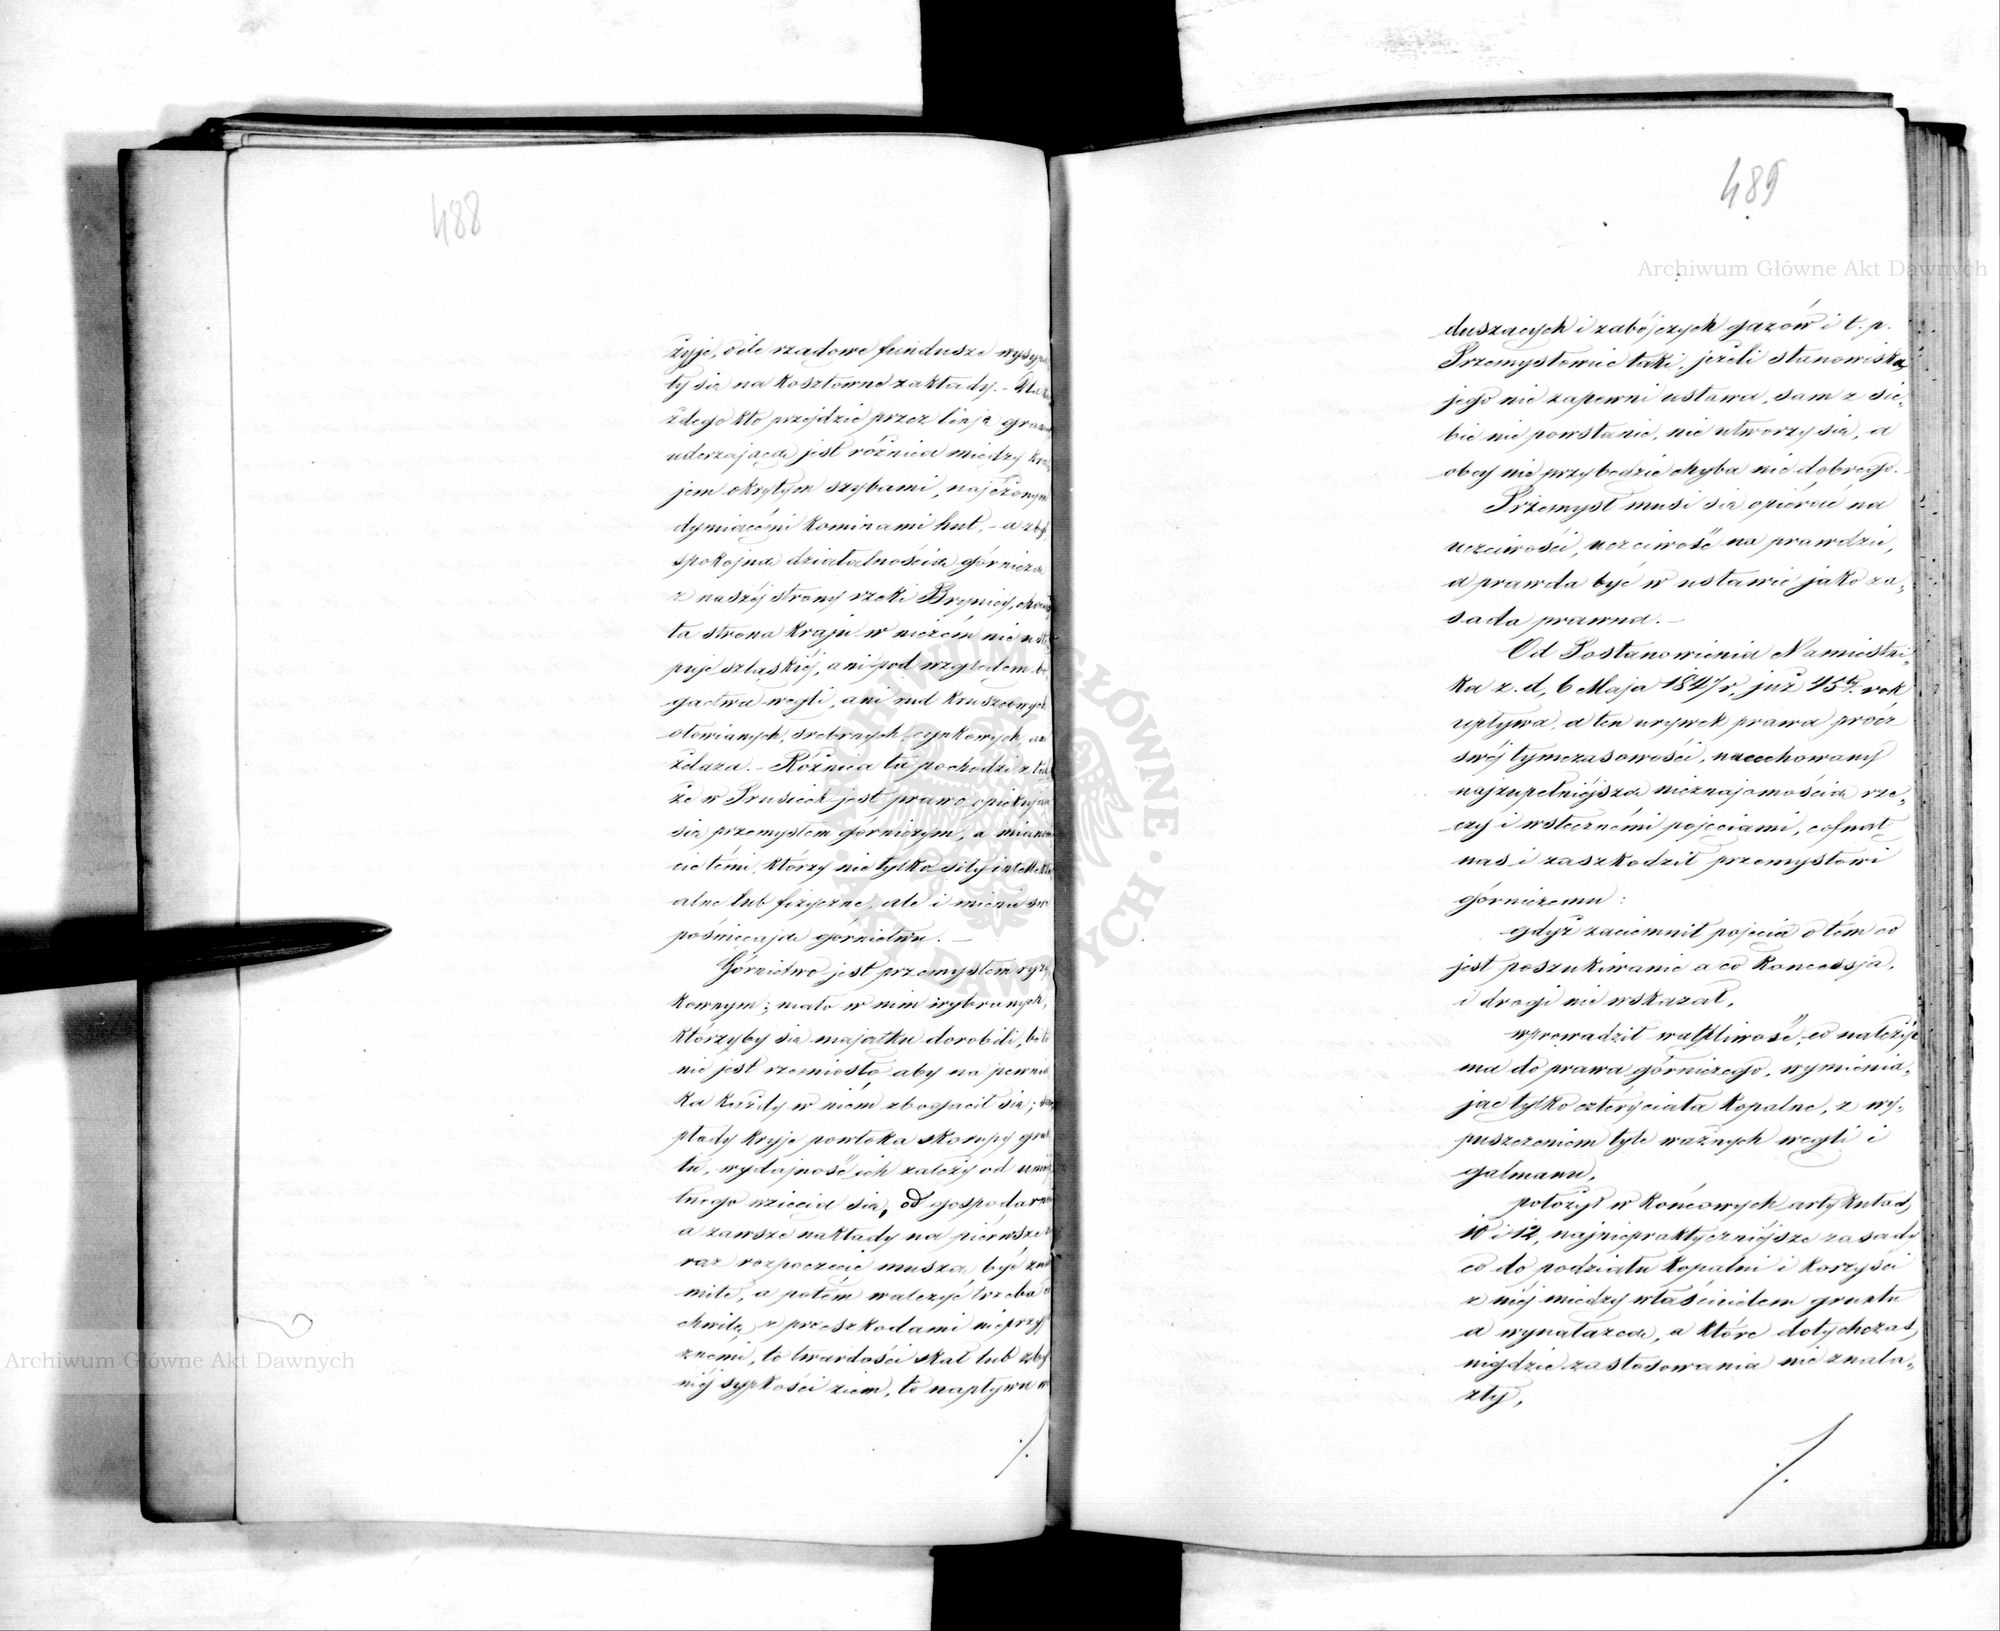 488
żyje, o ile rządowe fundusze wysy
ły się na kosztowne zakłady. - Dla ka
żdego kto przejdzie przez linją gran
uderzającą jest różnica między kra
jem okrytym szybami, najeżonym
dymiącémi kominami hut, - a zbyt
spokojną działalnością górniczą
z naszéj strony rzeki Brynicy, chociaż
ta strona kraju w niczém nie ustę
puje szląskiéj, ani pod względem bo
gactwa węgli, ani rud kruszcowych
ołowianych, srebrnych, cynkowych, ani
żelaza. - Różnica ta pochodzi z tąd,
że w Prusiech jest prawo opiekujące
się przemysłem górniczym, a mianowi
cie témi, którzy nie tylko siły intellektu
alne lub fizyczne, ale i mienie swe
poświęcają górnictwu. -
Górnictwo jest przemysłem ryzy
kownym; mało w nim wybranych,
którzyby się majątku dorobili, bo to
nie jest rzemiosło aby na pewnia
ka każdy w niém zbogacił się;
płady kryje powłoka skorupy grun
tu, wydajność ich zależy od umie
tnego wzięcia się, od gospodarno
a zawsze nakłady na piérwsze
raz rozpoczęcie muszą być zna
mite, a potém walczyć trzeba co
chwilę z przeszkodami nieprzy
znemi, to twardości skał lub zby
niéj sypkości ziem, to napływu w
./.
489
duszących i zabójczych gazów i t. p.
Przemysłowiec taki, jeżeli stanowiska
jego nie zapewni ustawa, sam z sie-
bie nie powstanie, nie utworzy się, a
obcy nie przybędzie chyba nic dobrego.
Przemysł musi się opiérać na
uczciwości, uczciwość na prawdzie,
a prawda być w ustawie jako za-
sada prawna. -
Od Postanowienia Namiestni-
ka z. d, 6 Maja 1847 r, już 15ty. rok
upływa, a ten urywek prawa prócz
swéj tymczasowości, nacechowany
najzupełniéjszą nieznajomością rze-
czy i wstecznémi pojęciami, cofnął
nas i zaszkodził przemysłowi
górniczemu:
gdyż zaciemnił pojęcia o tém co
jest poszukiwanie a co koncessja,
i drogi nie wskazał,
wprowadził wątpliwość, co należyć
ma do prawa górniczego, wymienia-
jąc tylko cztéry ciała kopalne, z wy-
puszczeniem tyle ważnych węgli i
galmanu,
położył w końcowych artykułach,
10 i 12, najniepraktyczniéjsze zasady
co do podziału kopalni i korzyści
z niéj między właścicielem gruntu
a wynalazcą, a które dotychczas,
nigdzie zastosowania nie znala-
zły,
./.
Archiwum Główne Akt Dawnych
Archiwum Główne Akt Dawnych
ARCHIWUM GŁÓWNE AKT DAWNYCH